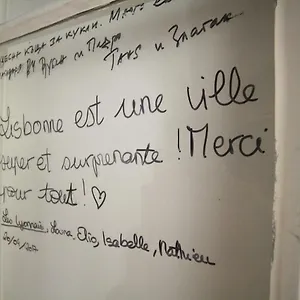 КЪЩА ЗА КУКЛИ. МНОГО
и
Таня и Златан
Lisbonne est une ville
super et surprenante ! Merci
pour tout ! ♡
Les Lyonnais, Laura, Elio, Isabelle, Mathieu